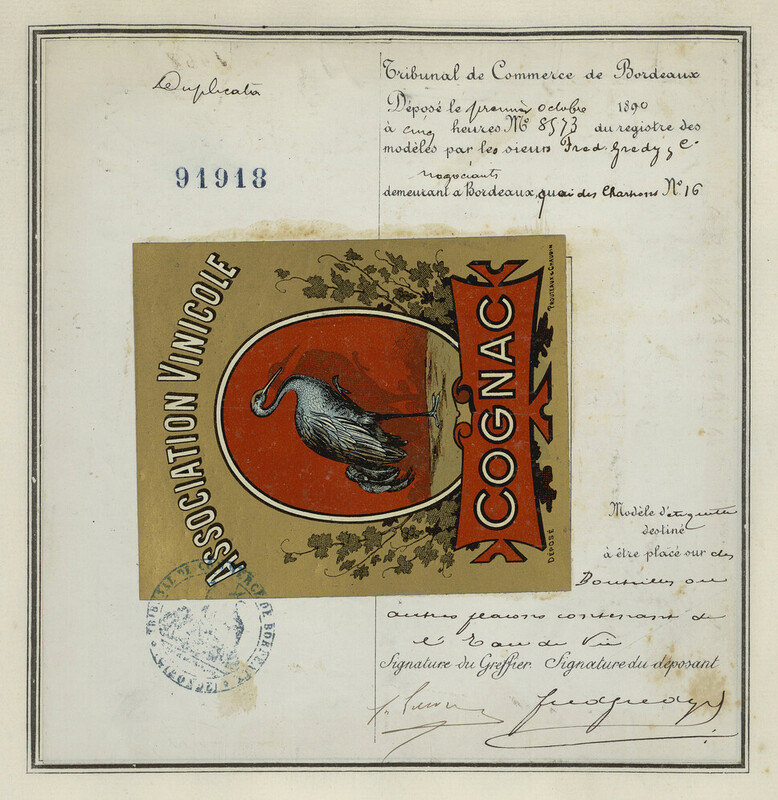 Duplicata
91918
Tribunal de Commerce de Bordeaux
Déposé le premier octobre 1890
à cinq heures N° 8573 du registre des
modèles par les sieurs Fred. Gredy & Cie
négociants
demeurant à Bordeaux, quai des Chartrons N° 16
ASSOCIATION VINICOLE
COGNAC
DÉPOSÉ
Modèle d'étiquette
destiné
à être placé sur des
Bouteilles ou
autres flacons contenant de
l'Eau de Vie
Signature du Greffier. Signature du déposant
fredgredy
TRIBUNAL DE COMMERCE DE BORDEAUX